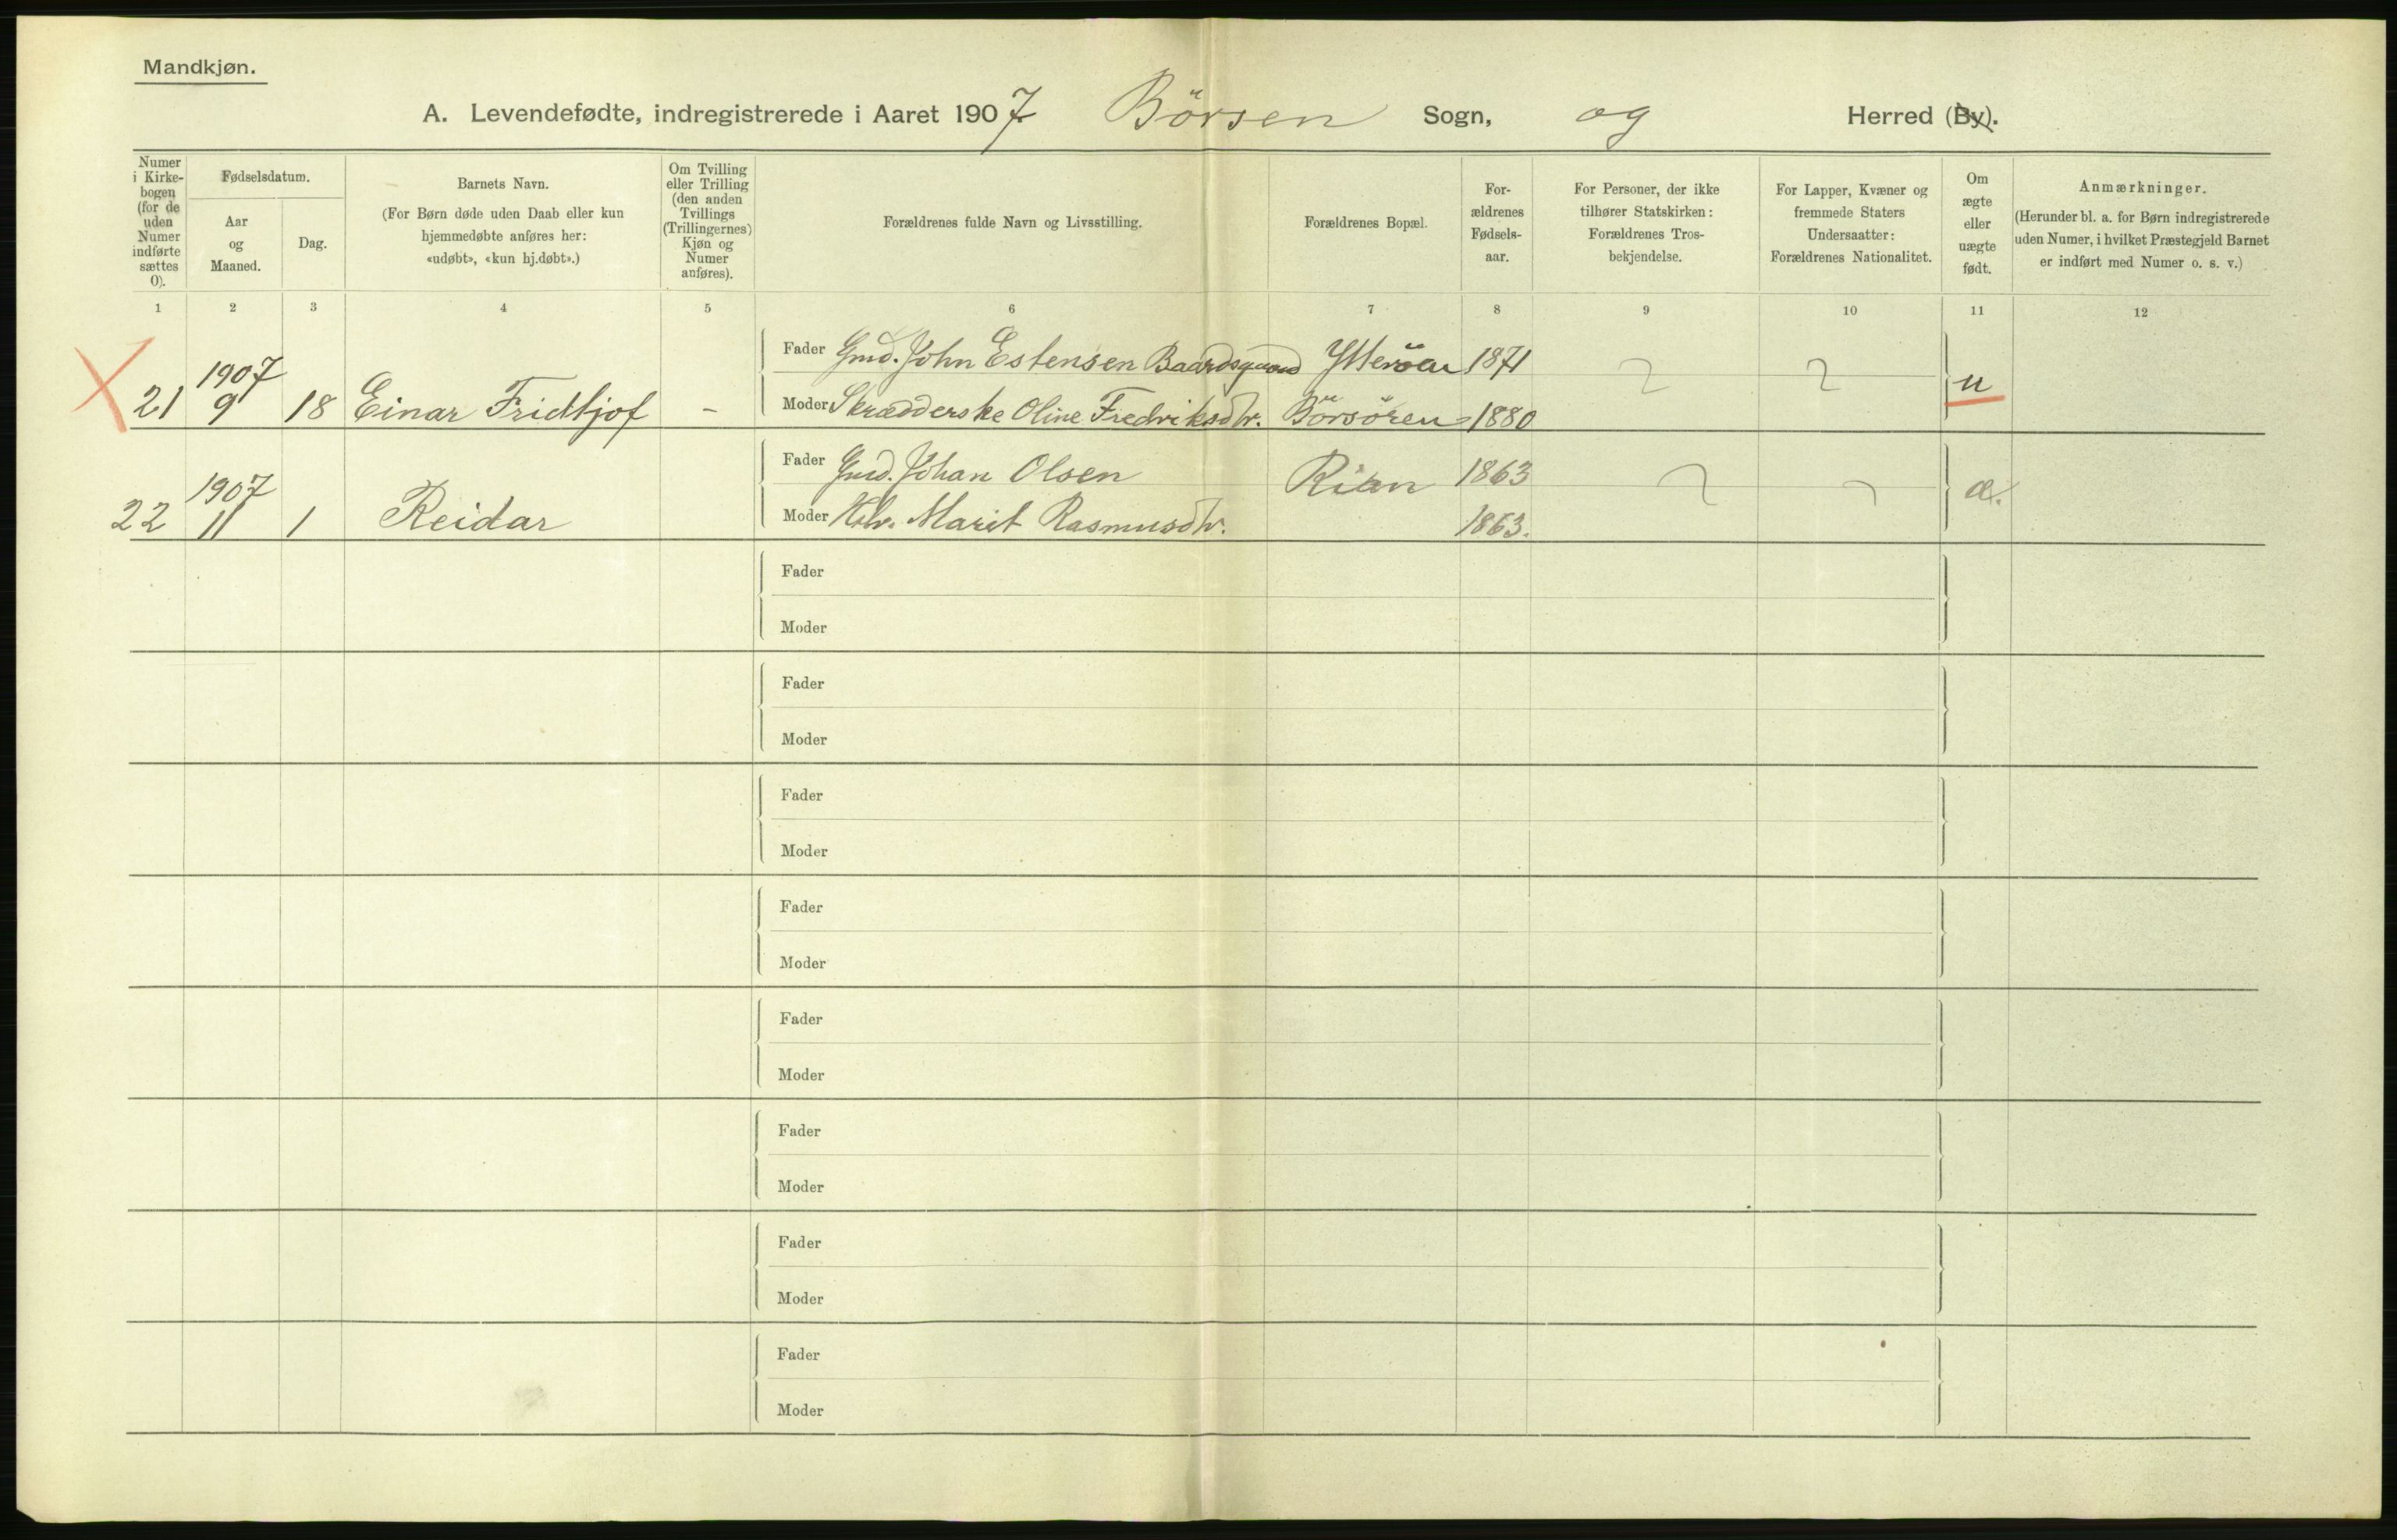 Mandkjøn.
A. Levendefødte, indregistrerede i Aaret 1907 Børsen Sogn, og Herred (By).
Numer i Kirkebogen (for de uden Numer indførte sættes 0).
Fødselsdatum.
Aar og Maaned.
Dag.
Barnets Navn.
(For Børn døde uden Daab eller kun hjemmedøbte anføres her: «udøbt», «kun hj.døbt».)
Om Tvilling eller Trilling (den anden Tvillings (Trillingernes) Kjøn og Numer anføres).
Forældrenes fulde Navn og Livsstilling.
Forældrenes Bopæl.
Forældrenes Fødselsaar.
For Personer, der ikke tilhører Statskirken: Forældrenes Trosbekjendelse.
For Lapper, Kvæner og fremmede Staters Undersaatter: Forældrenes Nationalitet.
Om ægte eller uægte født.
Anmærkninger.
(Herunder bl. a. for Børn indregistrerede uden Numer, i hvilket Præstegjeld Barnet er indført med Numer o. s. v.)
1 2 3 4 5 6 7 8 9 10 11 12
Fader Gmd. John Estensen Ytterøen 1871
21 1907 9 18 Einar Fridtjof - u
Moder Skrædderske Oline Fredriksdtr. Børsøren 1880
Fader Gmd. Johan Olsen Rian 1863
22 1907 11 1 Reidar æ.
Moder Marit Rasmusdtr. 1863.
Fader
Moder
Fader
Moder
Fader
Moder
Fader
Moder
Fader
Moder
Fader
Moder
Fader
Moder
Fader
Moder